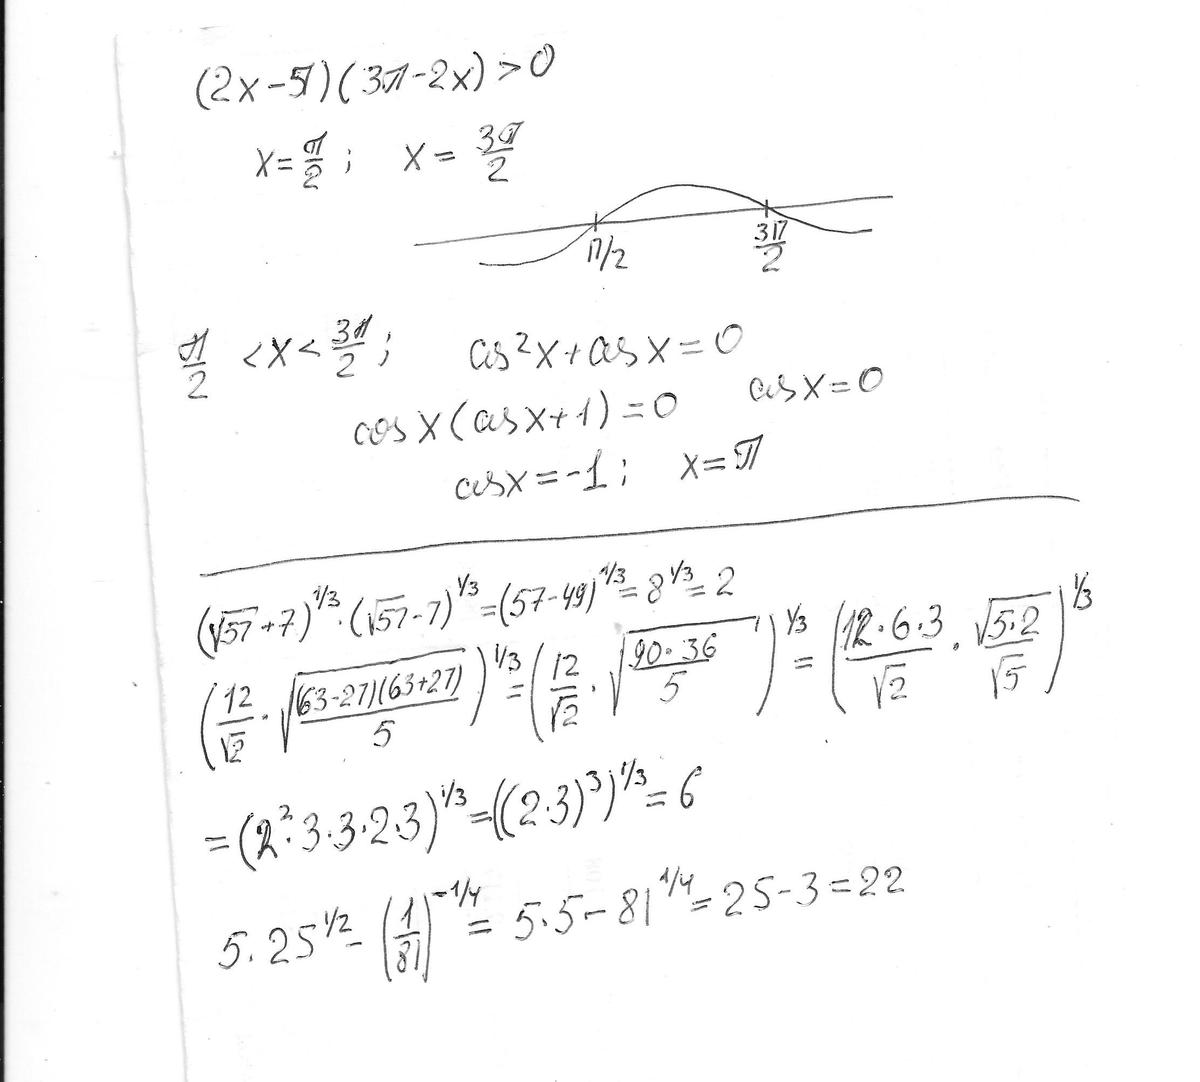 (2x-π)(3π-2x)>0
x=π/2; x=3π/2
π/2 3π/2
π/2 <x<3π/2; cos²x+cosx=0
cosx(cosx+1)=0 cosx=0
cosx=-1; x=π
(√57+7)^1/3·(√57-7)^1/3=(57-49)^1/3=8^1/3=2
(12/√2·√((63-27)(63+27)/5))^1/3=(12/√2·√(90·36/5))^1/3=(12·6·3/√2·√(5·2)/√5)^1/3
=(2²·3·3·2·3)^1/3=((2·3)³)^1/3=6
5·25^1/2-(1/81)^-1/4=5·5-81^1/4=25-3=22